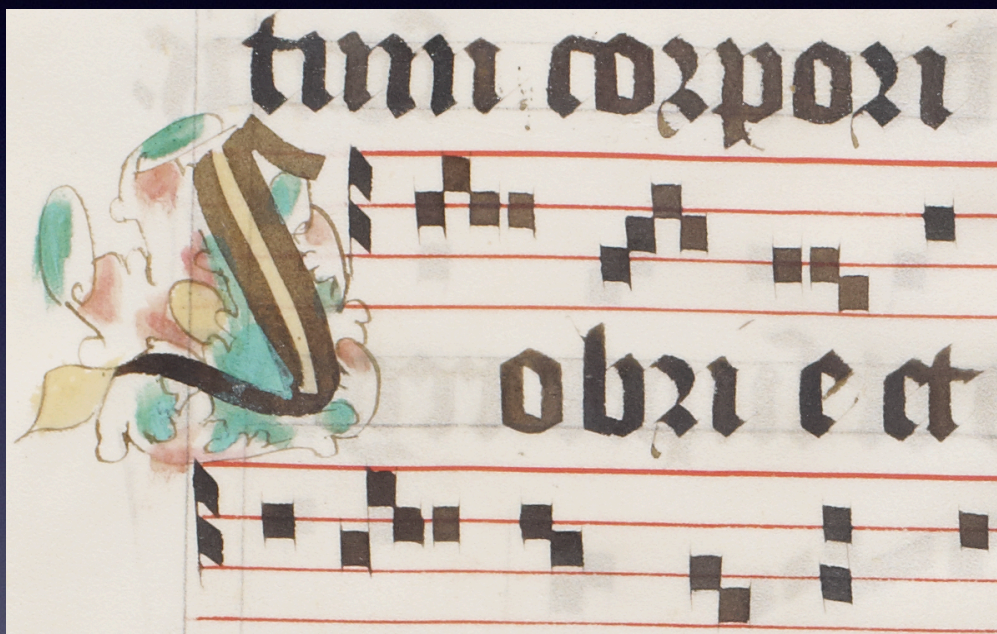 tum corpori
Sobri e et